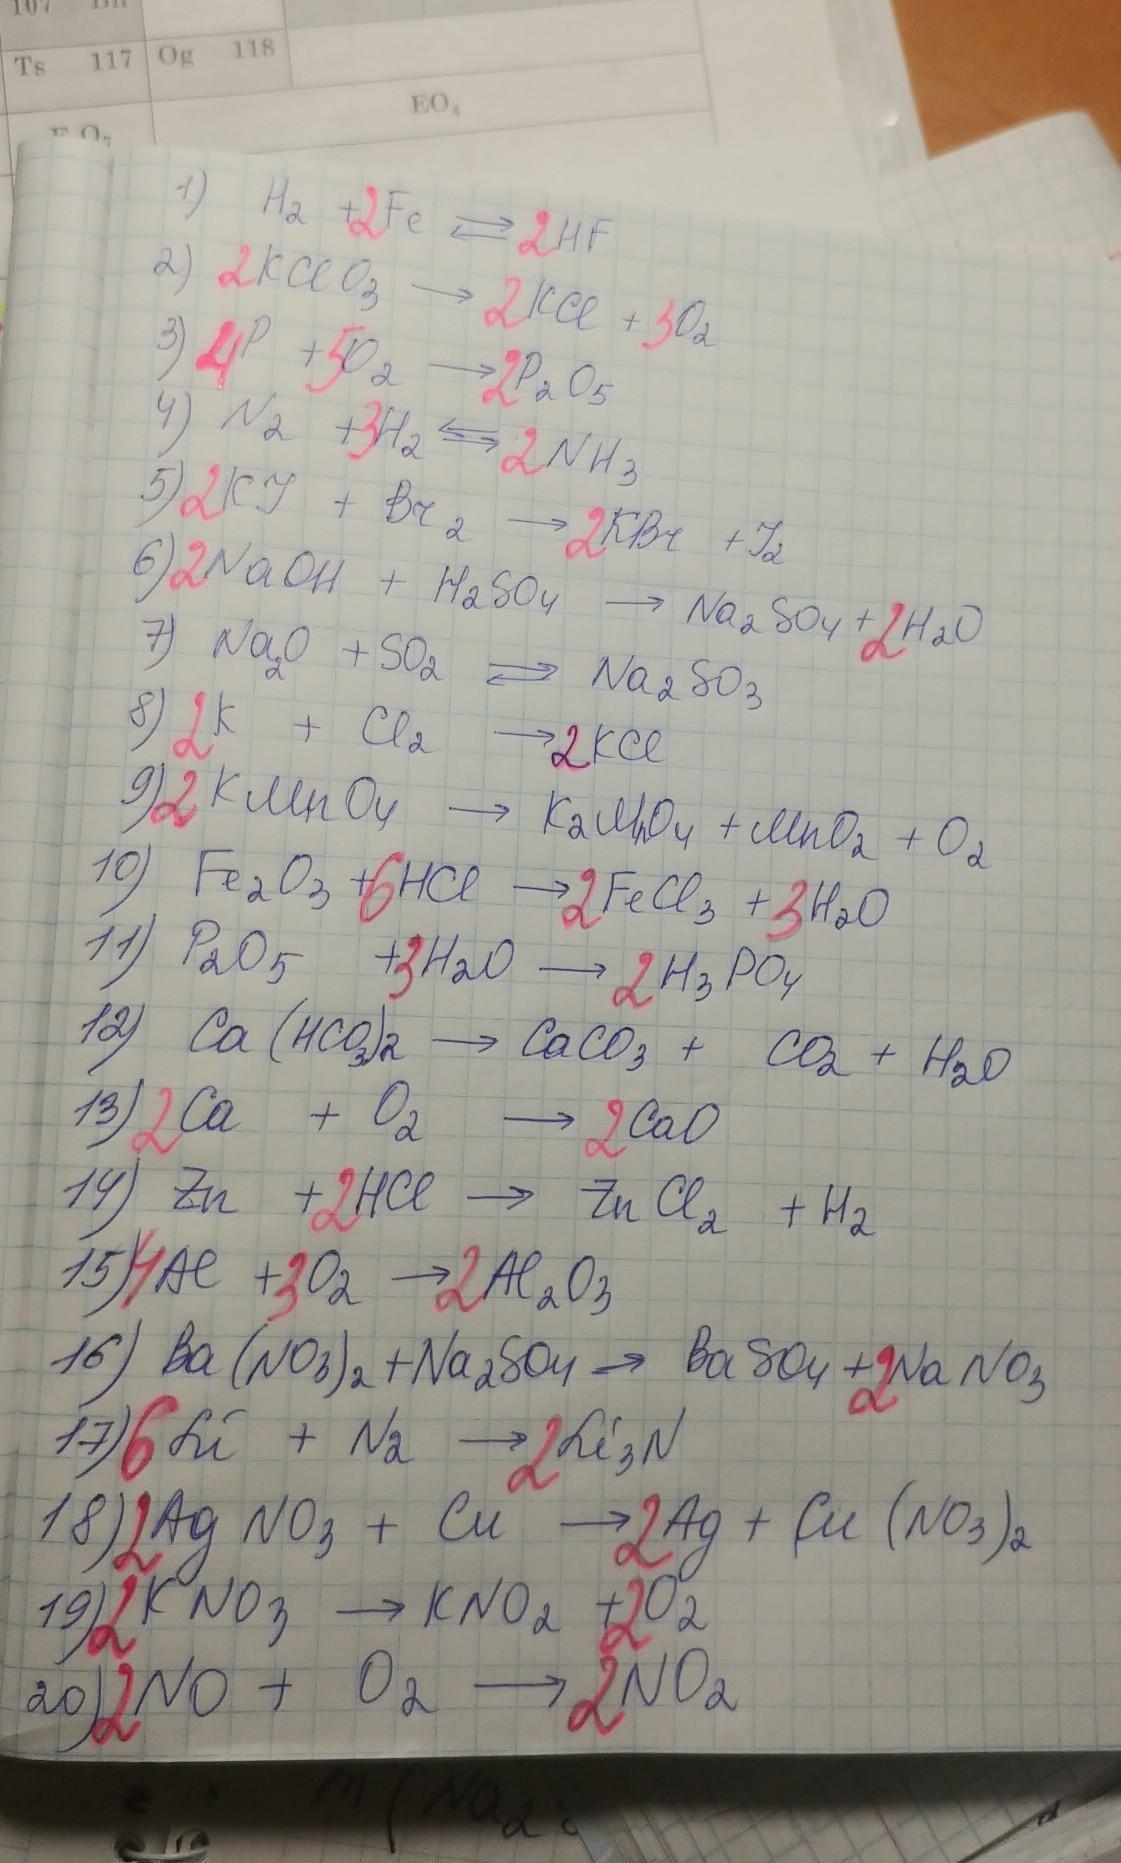 107 Bh
Ts 117 Og 118
EO₄
1) H₂ + 2Fe ⇌ 2HF
2) 2KClO₃ → 2KCl + 3O₂
3) 4P + 5O₂ → 2P₂O₅
4) N₂ + 3H₂ ⇌ 2NH₃
5) 2KJ + Br₂ → 2KBr + J₂
6) 2NaOH + H₂SO₄ → Na₂SO₄ + 2H₂O
7) Na₂O + SO₂ ⇌ Na₂SO₃
8) 2K + Cl₂ → 2KCl
9) 2KMnO₄ → K₂MnO₄ + MnO₂ + O₂
10) Fe₂O₃ + 6HCl → 2FeCl₃ + 3H₂O
11) P₂O₅ + 3H₂O → 2H₃PO₄
12) Ca(HCO₃)₂ → CaCO₃ + CO₂ + H₂O
13) 2Ca + O₂ → 2CaO
14) Zn + 2HCl → ZnCl₂ + H₂
15) 4Al + 3O₂ → 2Al₂O₃
16) Ba(NO₃)₂ + Na₂SO₄ → BaSO₄ + 2NaNO₃
17) 6Li + N₂ → 2Li₃N
18) 2AgNO₃ + Cu → 2Ag + Cu(NO₃)₂
19) 2KNO₃ → KNO₂ + 2O₂
20) 2NO + O₂ → 2NO₂
m(Na₂